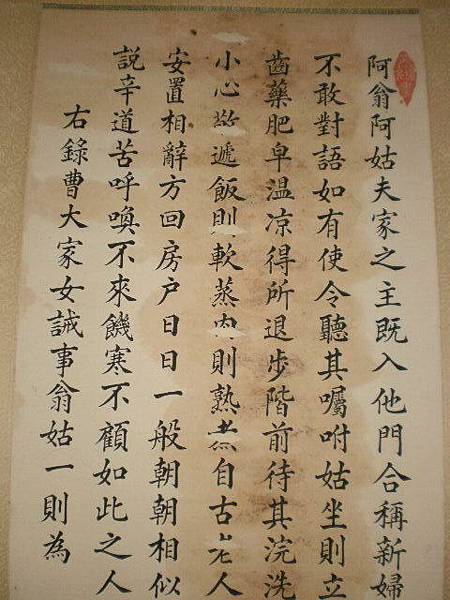 阿翁阿姑夫家之主既入他門合稱新婦
不敢對語如有使令聽其囑咐姑坐則立
齒藥肥皁温凉得所退步階前待其浣洗
小心遞飯則軟蒸肉則熟自古老人
安置相辭方回房户日日一般朝朝相似
説辛道苦呼喚不來饑寒不顧如此之人
右錄曹大家女誡事翁姑一則為